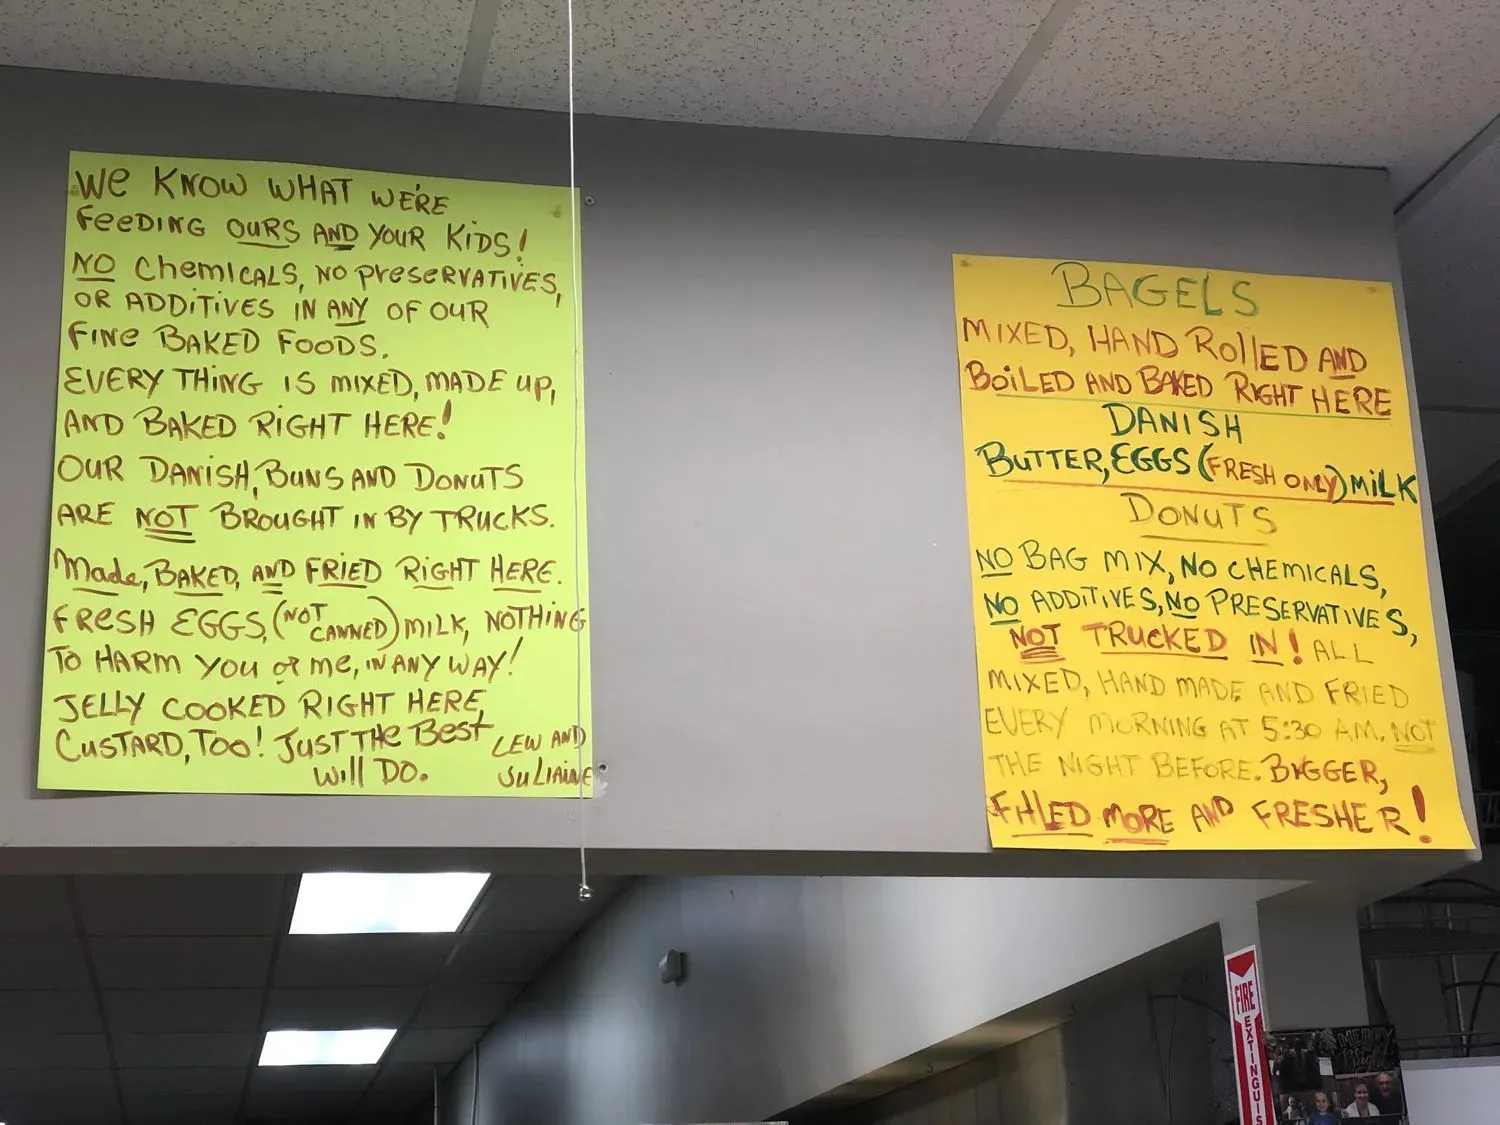 WE KNOW WHAT WE'RE
FEEDING OURS AND YOUR KIDS!
NO CHEMICALS, NO PRESERVATIVES,
OR ADDITIVES IN ANY OF OUR
FINE BAKED FOODS.
EVERY THING IS MIXED, MADE UP,
AND BAKED RIGHT HERE!
OUR DANISH, BUNS AND DONUTS
ARE NOT BROUGHT IN BY TRUCKS.
Made, BAKED, AND FRIED RIGHT HERE.
FRESH EGGS, (NOT CANNED) MILK, NOTHING
TO HARM YOU or me, IN ANY WAY!
JELLY COOKED RIGHT HERE,
CUSTARD, TOO! JUST THE BEST
Will DO.
LEW AND
JULIAINE
BAGELS
MIXED, HAND RollED AND
BOiLED AND BAKED RIGHT HERE
DANISH
BUTTER, EGGS (FRESH ONLY) MiLK
DONUTS
NO BAG MIX, NO CHEMICALS,
NO ADDITIVES, NO PRESERVATIVES,
NOT TRUCKED IN! ALL
MIXED, HAND MADE AND FRIED
EVERY MORNING AT 5:30 A.M. NOT
THE NIGHT BEFORE. BIGGER,
FILLED MORE AND FRESHER!
FIRE
EXTINGUIS